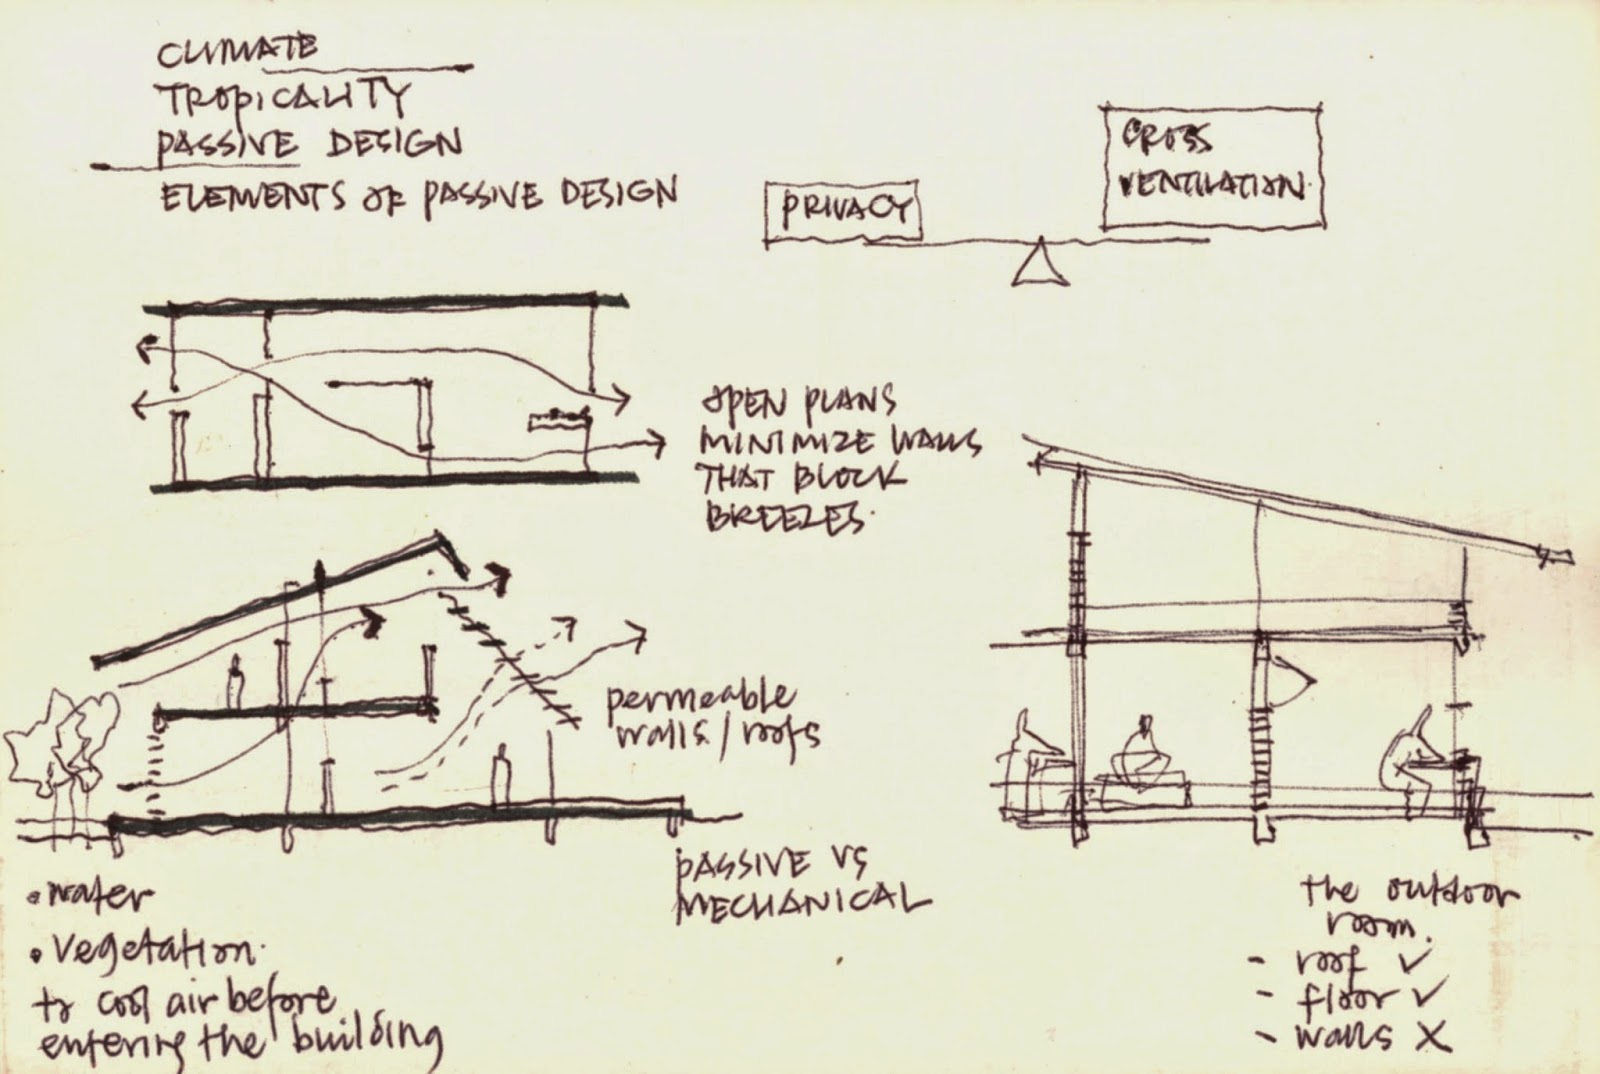 CLIMATE
TROPICALITY
PASSIVE DESIGN
ELEMENTS OF PASSIVE DESIGN
PRIVACY
CROSS
VENTILATION.
OPEN PLANS
MINIMIZE WALLS
THAT BLOCK
BREEZES.
permeable
walls/roofs
PASSIVE VS
MECHANICAL
• water
• vegetation.
to cool air before
entering the building
the outdoor
room.
- roof ✓
- floor ✓
- walls X